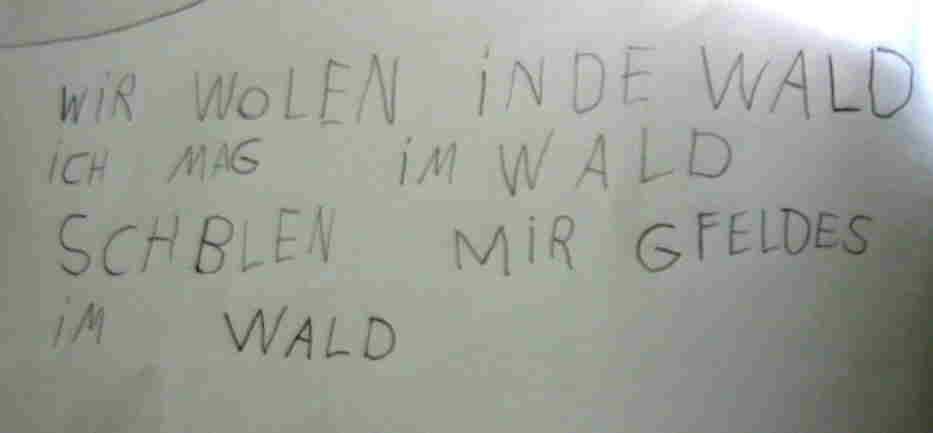 WiR WOLEN iNDE WALD
iCH MAG iM WALD
SCHBLEN MiR GFELDES
iM WALD